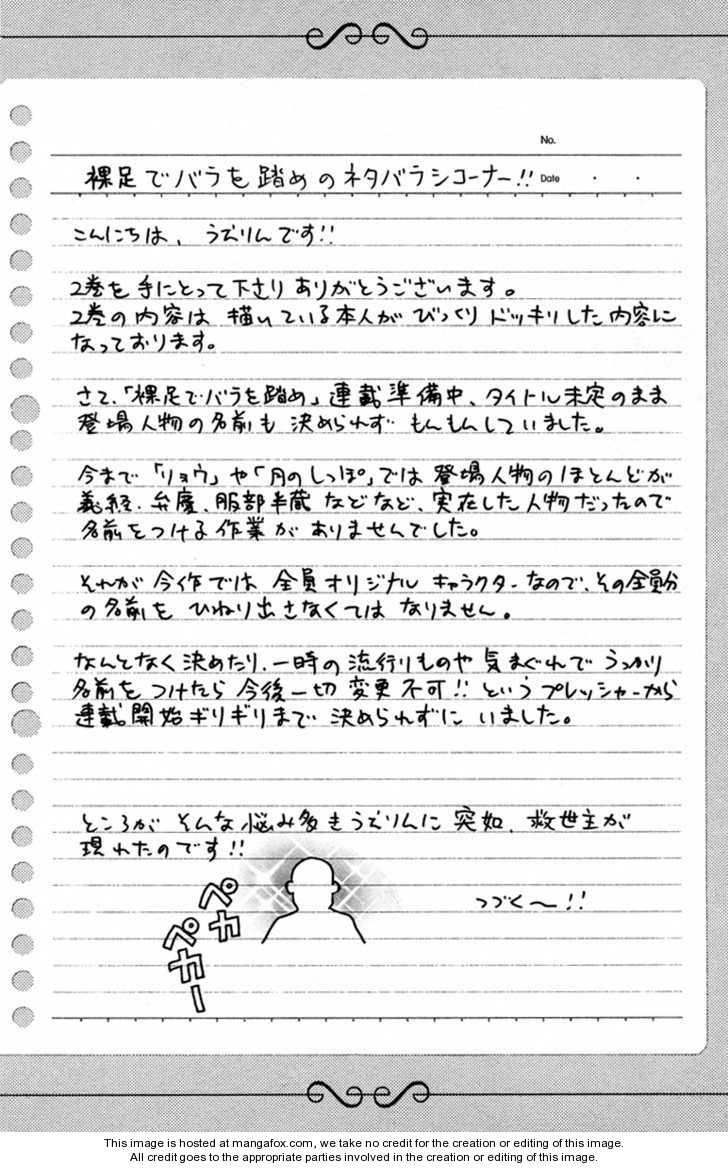 No.
裸足でバラを踏めのネタバラシコーナー!! Date ・ ・
こんにちは、うえりんです!!
2巻を手にとって下さりありがとうございます。
2巻の内容は描いている本人がびっくりドッキリした内容に
なっております。
さて、「裸足でバラを踏め」連載準備中、タイトル未定のまま
登場人物の名前も決められずもんもんしていました。
今まで「リョウ」や「月のしっぽ」では登場人物のほとんどが
義経、弁慶、服部半蔵などなど、実在した人物だったので
名前をつける作業がありませんでした。
それが今作では全員オリジナルキャラクターなので、その全員分
の名前をひねり出さなくてはなりません。
なんとなく決めたり、一時の流行りものや気まぐれでうっかり
名前をつけたら今後一切変更不可!!というプレッシャーから
連載開始ギリギリまで決められずにいました。
ところがそんな悩み多きうえりんに突如、救世主が
現れたのです!!
ペカ
ペカー
つづく〜!!
This image is hosted at mangafox.com, we take no credit for the creation or editing of this image.
All credit goes to the appropriate parties involved in the creation or editing of this image.